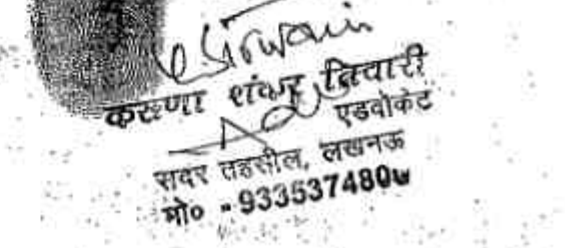 करुणा शंकर तिवारी
एडवोकेट
सदर तहसील, लखनऊ
मो० - 933537480